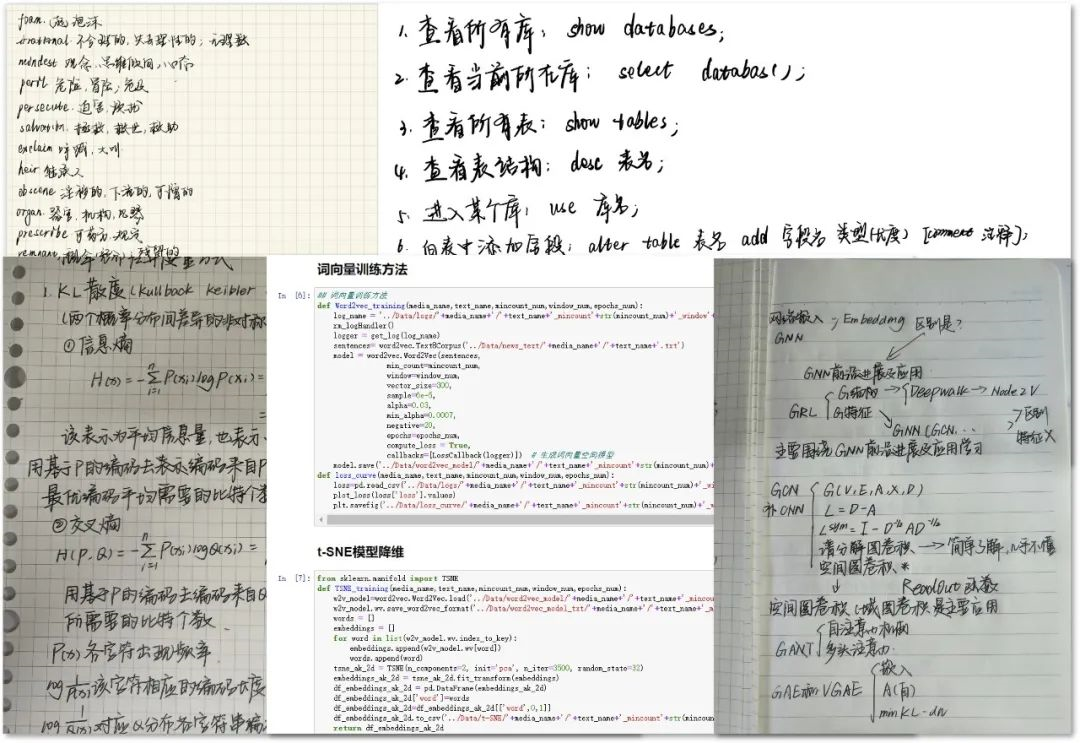 foam. 泡沫
irrational 不合理的, 失去理性的; 无理数
mindset 观念、思维
peril 危险, 冒险; 危及
persecute. 迫害,
salvation. 拯救, 救世, 救助
exclaim 呼喊, 大叫
heir 继承人
obscene 淫秽的, 下流的, 可憎的
organ. 器官, 机构,
prescribe 开药方, 规定
remnant
1. 查看所有库: show databases;
2. 查看当前所在库: select databas();
3. 查看所有表: show tables;
4. 查看表结构: desc 表名;
5. 进入某个库: use 库名;
6. 向表中添加字段: alter table 表名 add 字段名 类型(长度) [comment 注释];
1. KL散度 (Kullback Keibler
(两个概率分布间差异的非对称
① 信息熵
H(x) = -∑ P(xi) log P(xi) =
n
i=1
该表示为平均信息量, 也表示
用基于P的编码去表示编码来自P
最优编码平均需要的比特个数
② 交叉熵
H(P,Q) = -∑ P(xi) log Q(xi) =
n
i=1
用基于P的编码去编码来自Q
所需要的比特个数
P(x) 各字符出现频率
该字符相应的编码长度
对应Q分布各字符串编
词向量训练方法
In [6]: ## 词向量训练方法
def Word2vec_training(media_name,text_name,mincount_num,window_num,epochs_num):
log_name = '../Data/logs/'+media_name+'/'+text_name+'_mincount'+str(mincount_num)+'_window'+
rm_logHandler()
logger = get_log(log_name)
sentences= word2vec.Text8Corpus('../Data/news_text/'+media_name+'/'+text_name+'.txt')
model = word2vec.Word2Vec(sentences,
min_count=mincount_num,
window=window_num,
vector_size=300,
sample=6e-5,
alpha=0.03,
min_alpha=0.0007,
negative=20,
epochs=epochs_num,
compute_loss = True,
callbacks=[LossCallback(logger)]) # 生成词向量空间模型
model.save('../Data/word2vec_model/'+media_name+'/'+text_name+'_mincount'+str(mincount_num)+
def loss_curve(media_name,text_name,mincount_num,window_num,epochs_num):
loss=pd.read_csv('../Data/logs/'+media_name+'/'+text_name+'_mincount'+str(mincount_num)+'_wi
plot_loss(loss['loss'].values)
plt.savefig('../Data/loss_curve/'+media_name+'/'+text_name+'_mincount'+str(mincount_num)+'_w
t-SNE模型降维
In [7]: from sklearn.manifold import TSNE
def TSNE_training(media_name,text_name,mincount_num,window_num,epochs_num):
w2v_model=word2vec.Word2Vec.load('../Data/word2vec_model/'+media_name+'/'+text_name+'_minc
w2v_model.wv.save_word2vec_format('../Data/word2vec_model_txt/'+media_name+'/'+text_name+'_
words = []
embeddings = []
for word in list(w2v_model.wv.index_to_key):
embeddings.append(w2v_model.wv[word])
words.append(word)
tsne_ak_2d = TSNE(n_components=2, init='pca', n_iter=3500, random_state=32)
embeddings_ak_2d = tsne_ak_2d.fit_transform(embeddings)
df_embeddings_ak_2d = pd.DataFrame(embeddings_ak_2d)
df_embeddings_ak_2d['word']=words
df_embeddings_ak_2d=df_embeddings_ak_2d[['word',0,1]]
df_embeddings_ak_2d.to_csv('../Data/t-SNE/'+media_name+'/'+text_name+'_mincount'+str(mincou
return df_embeddings_ak_2d
网络嵌入 Embedding 区别是?
GNN
GNN前沿进展及应用
G结构 → Deepwalk → Node2V
GRL G特征 区别
GNN (GCN, ... 特征X
主要围绕GNN前沿进展及应用学习
GCN G(V,E,A,X,D)
补CNN L = D-A
Lsym = I - D-1/2 AD-1/2
谱分解图卷积 → 简单了解, 几乎不懂
空间图卷积 *
Readout 函数
空间图卷积 域图卷积是主要应用
自注意力机制
GANT 多头注意力
嵌入
GAE和VGAE A(自)
min KL-div